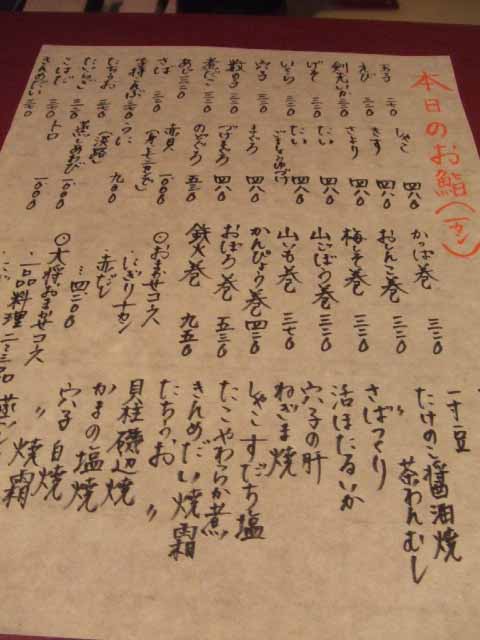 本日のお鮨(一カン)
玉子
えび 三二〇
剣先いか 三二〇
げそ
いくら 三二〇
穴子 三二〇
数の子 三二〇
煮だこ 三二〇
あじ 三二〇
さば 三二〇
子持こんぶ 三二〇
たちうお 三二〇
こはだ
きんめだい
しゃこ 四八〇
きす 四八〇
さより 四八〇
たい 四八〇
たい
四八〇
まぐろ 四八〇
づけまぐろ 四八〇
のどぐろ 五三〇
赤貝 一〇〇〇
うに
(淡路) 九〇〇
蒸しあわび 一〇〇〇
トロ 一〇〇〇
かっぱ巻 三二〇
おしんこ巻 三二〇
梅しそ巻 三二〇
山ごぼう巻 三二〇
山いも巻 三七〇
かんぴょう巻 四二〇
おぼろ巻 五三〇
鉄火巻 九五〇
○おまかせコース
・にぎり十カン
・赤だし
…四二〇〇
○大将おまかせコース
・一品料理二〜三品
一寸豆
たけのこ醤油焼
茶わんむし
さばつくり
活ほたるいか
穴子の肝
ねぎま焼
しゃこすだち塩
たこやわらか煮
きんめだい焼霜
たちうお 〃
貝柱磯辺焼
かまの塩焼
穴子白焼
〃 焼霜